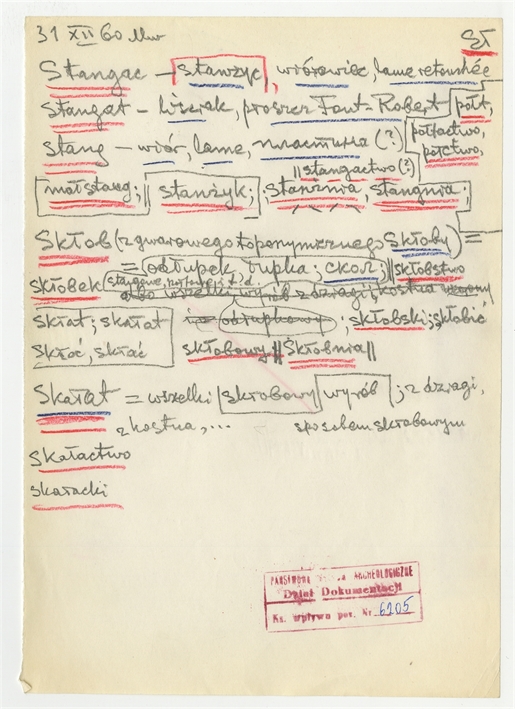 31 XII 60 Mw Sł
Stangac – stanżyc, wiórowiec, lame retouchée
Stangat – liściak, proszcz Font-Robert półt,
Stang – wiór, lame, пластина (?) półtactwo, półctwo,
|| stangactwo (?)
małstang; || stanżyk; : stanznia, stangnia;
Skłob (z gwarowego toponymicznego Skłoby) =
= odłupek, łupka; скол; || skłobstwo
skłobek (stągowe, półtowe i t. d.
albo wszelki wyrób z dzragi, kostna
skłat; skałat odłupkowy; skłobski; skłobić
skłać; skłać skłobowy || Skłobnia ||
Skałat = wszelki skrobowy wyrób; z dzragi,
z kostna, ... sposobem skrobowym
Skałactwo
skałacki
PAŃSTWOWE ARCHEOLOGICZNE
Dział Dokumentacji
Ks. wpływu poz. Nr. 6205